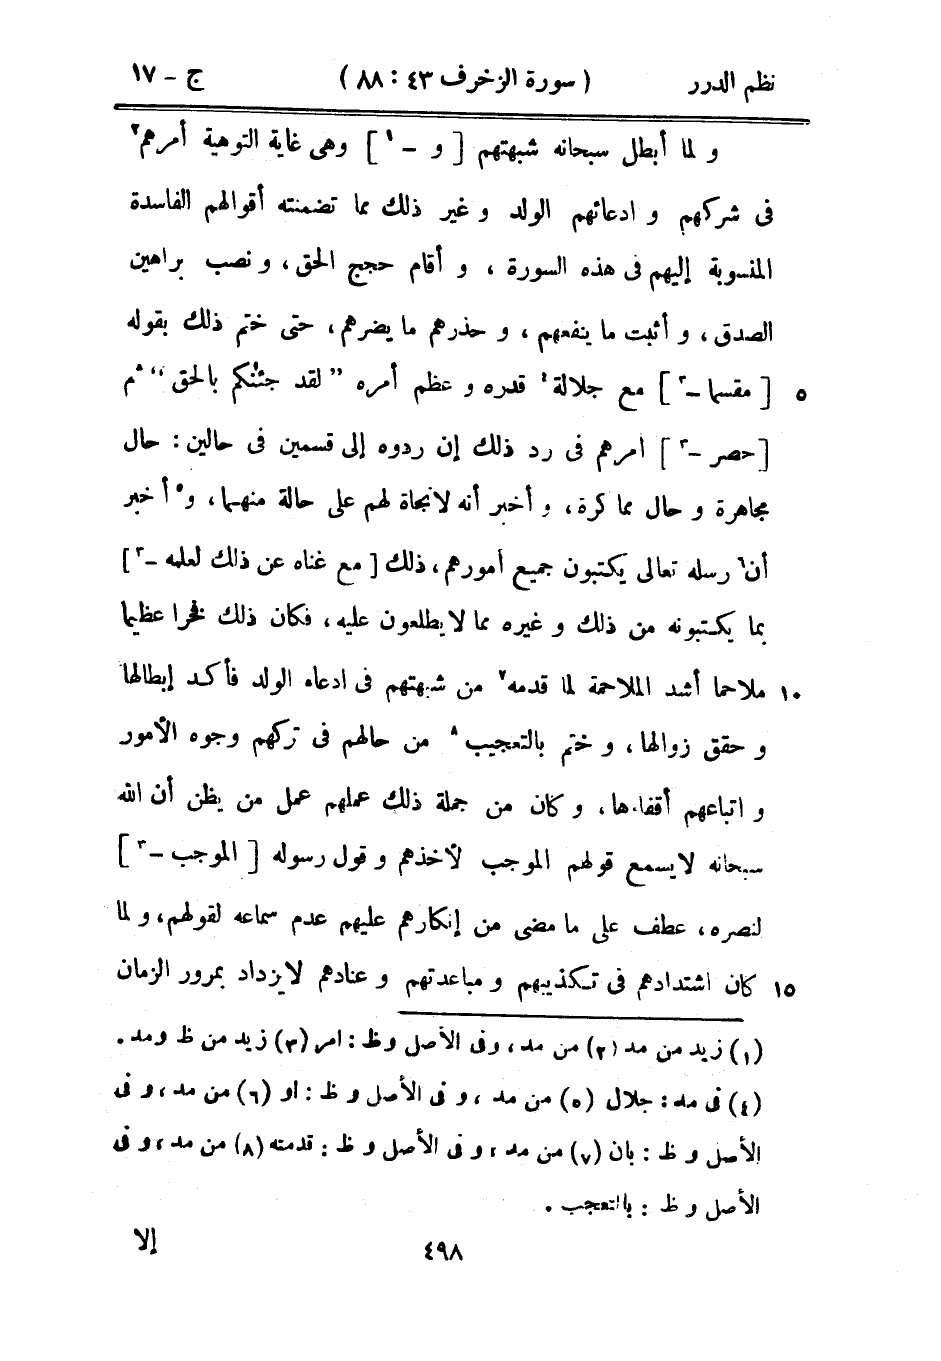 نظم الدرر ( سورة الزخرف ٤٣ : ٨٨ ) ج – ١٧
و لما أبطل سبحانه شبهتهم [ و – ١ ] وهى غاية التوهية أمرهم٢
فى شركهم و ادعائهم الولد و غير ذلك مما تضمنته أقوالهم الفاسدة
المنسوبة إليهم فى هذه السورة ، و أقام حجج الحق ، و نصب براهين
الصدق ، و أثبت ما ينفعهم ، و حذرهم ما يضرهم ، حتى ختم ذلك بقوله
٥ [ مقسما – ٣ ] مع جلالة٤ قدره و عظم أمره ” لقد جئنٰكم بالحق “ ثم
[ حصر – ٣ ] أمرهم فى رد ذلك إن ردوه إلى قسمين فى حالين : حال
مجاهرة و حال مماكرة ، و أخبر أنه لانجاة لهم على حالة منهما ، و٥ أخبر
أن٦ رسله تعالى يكتبون جميع أمورهم ، ذلك [ مع غناه عن ذلك لعلمه – ٣ ]
بما يكتبونه من ذلك و غيره مما لايطلعون عليه ، فكان ذلك فخرا عظيما
١٠ ملاحما أشد الملاحمة لما قدمه٧ من شبهتهم فى ادعاء الولد فأكد إبطالها
و حقق زوالها ، و ختم بالتعجيب٨ من حالهم فى تركهم وجوه الأمور
و اتباعهم أقفاءها ، و كان من جملة ذلك عملهم عمل من يظن أن الله
سبحانه لايسمع قولهم الموجب لأخذهم و قول رسوله [ الموجب – ٣ ]
لنصره ، عطف على ما مضى من إنكارهم عليهم عدم سماعه لقولهم ، و لما
١٥ كان اشتدادهم فى تكذيبهم و مباعدتهم و عنادهم لايزداد بمرور الزمان
(١) زيد من مد (٢) من مد ، وفى الأصل و ظ : امر (٣) زيد من ظ ومد .
(٤) فى مد : جلال (٥) من مد ، و فى الأصل و ظ : او (٦) من مد ، و فى
الأصل و ظ : بان (٧) من مد ، و فى الأصل و ظ : قدمته (٨) من مد ، و فى
الأصل و ظ : بالتعجب .
٤٩٨ إلا